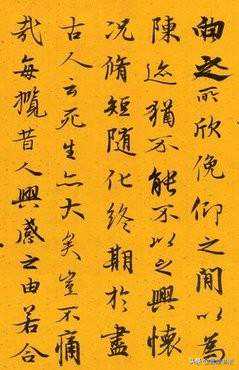 向之所欣俛仰之間以為
陳迹猶不能不以之興懷
況脩短隨化終期於盡
古人云死生亦大矣豈不痛
哉每攬昔人興感之由若合